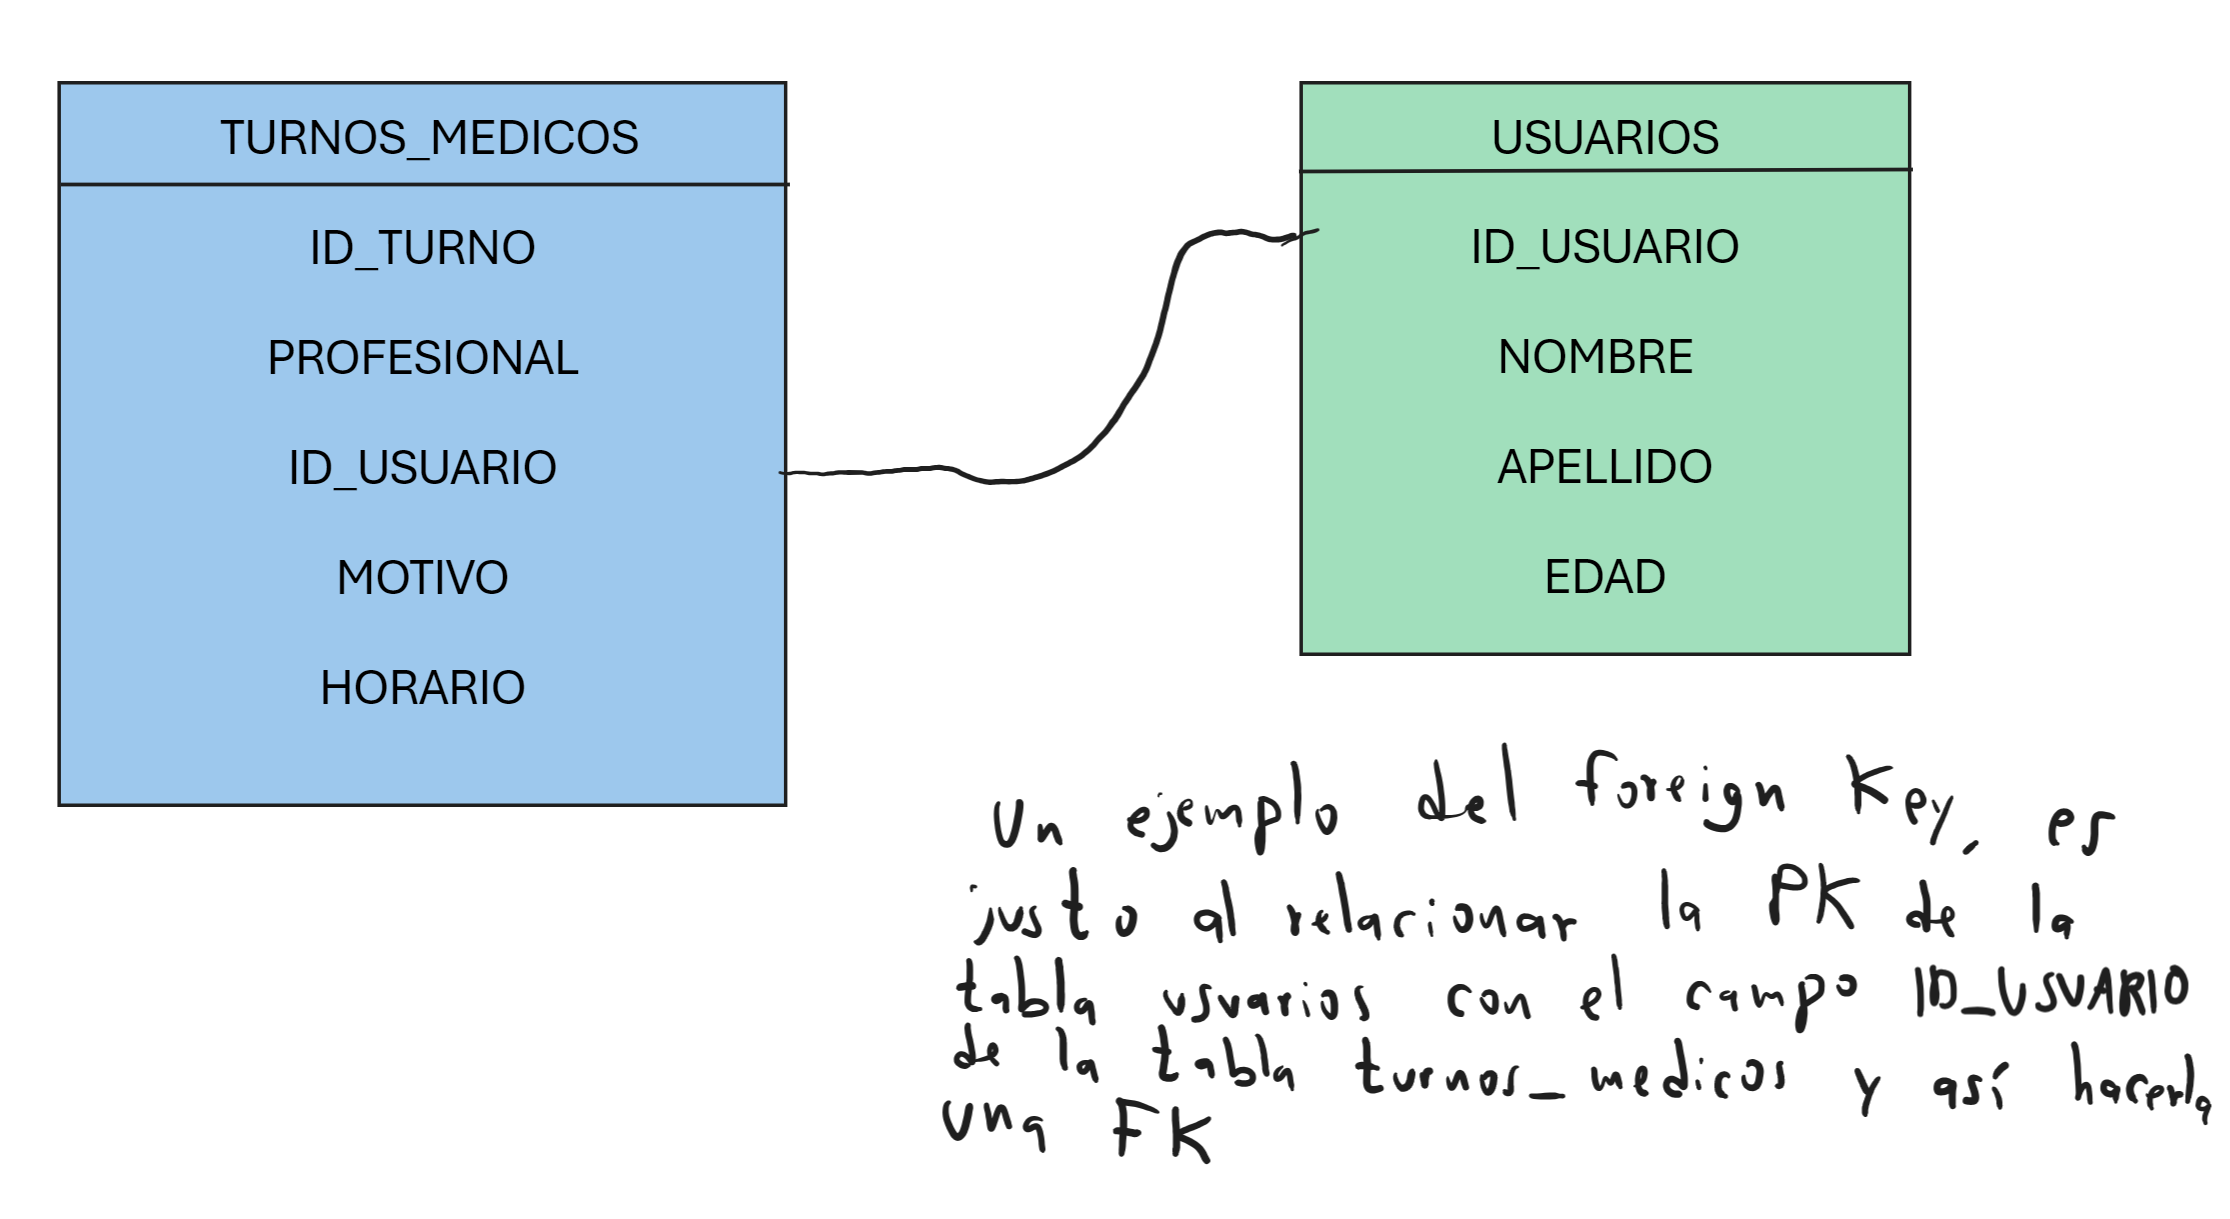 TURNOS_MEDICOS
ID_TURNO
PROFESIONAL
ID_USUARIO
MOTIVO
HORARIO
USUARIOS
ID_USUARIO
NOMBRE
APELLIDO
EDAD
Un ejemplo del foreign Key, es
justo al relacionar la PK de la
tabla usuarios con el campo ID_USUARIO
de la tabla turnos_medicos y así hacerla
una FK